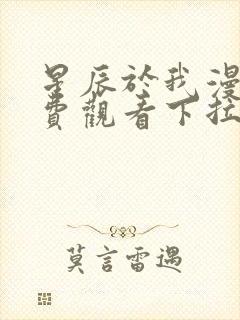 星辰於我漫
費觀看下拉
莫言雷遇